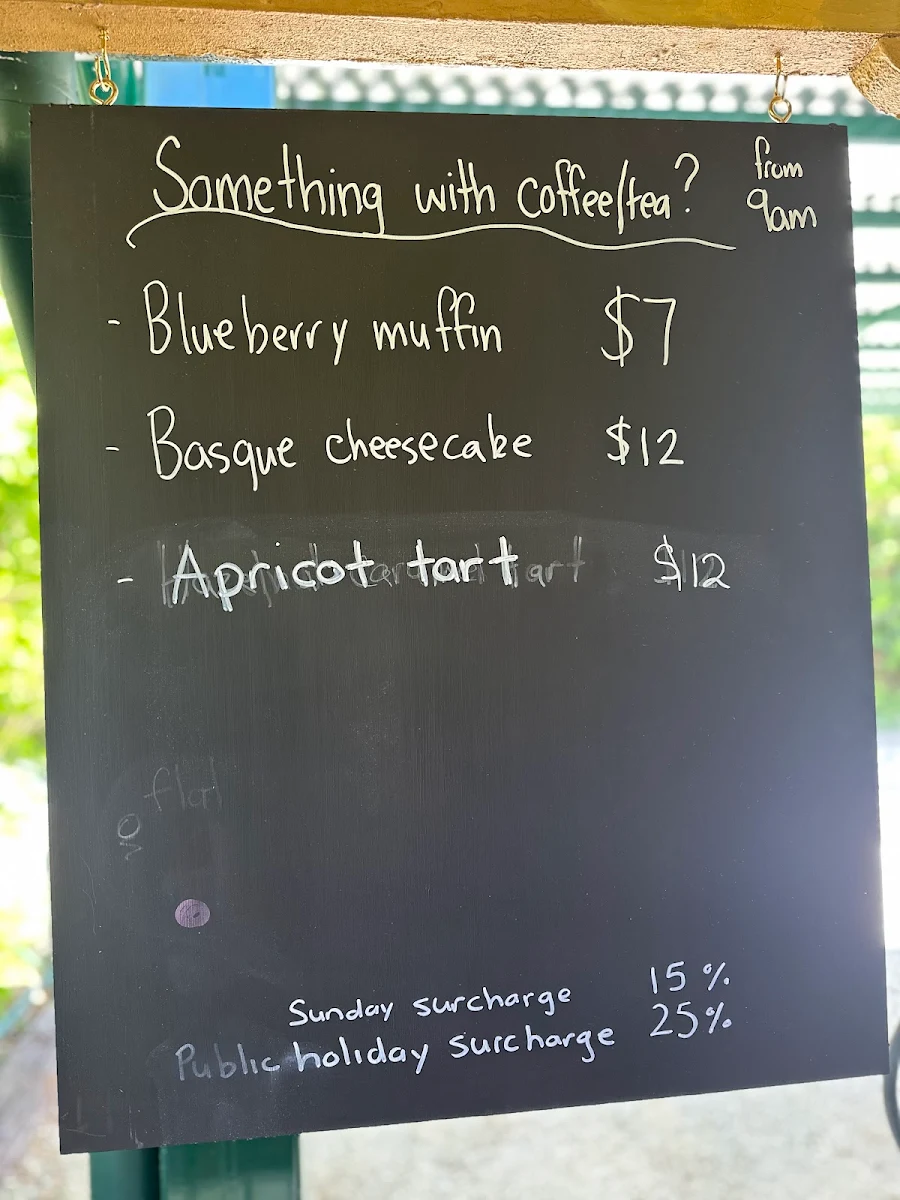 Something with coffee/tea?
from
9am
- Blueberry muffin $7
- Basque cheesecake $12
- Apricot tart $12
Sunday surcharge 15%
Public holiday surcharge 25%